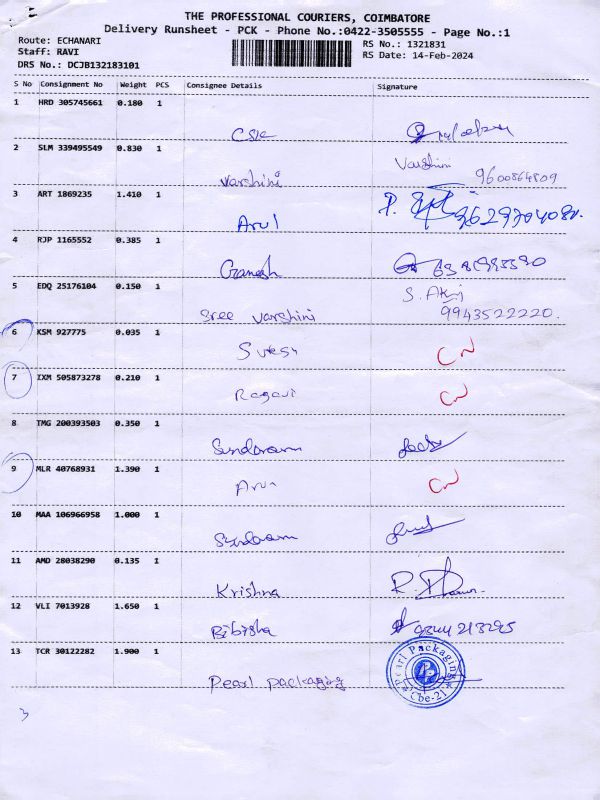 THE PROFESSIONAL COURIERS, COIMBATORE
Delivery Runsheet - PCK - Phone No.:0422-3505555 - Page No.:1
Route: ECHANARI
Staff: RAVI
DRS No.: DCJB132183101
RS No.: 1321831
RS Date: 14-Feb-2024
S No Consignment No Weight PCS Consignee Details Signature
1 HRD 305745661 0.180 1
CSK
2 SLM 339495549 0.830 1
Varshini Varshini 9600864809
3 ART 1869235 1.410 1
Arul
4 RJP 1165552 0.385 1
Ganesh
5 EDQ 25176104 0.150 1
Sree varshini 9943522220.
6 KSM 927775 0.035 1
Suresh CN
7 IXM 505873278 0.210 1
Ragavi CN
8 TMG 200393503 0.350 1
Sundaram
9 MLR 40768931 1.390 1
Arun CN
10 MAA 106966958 1.000 1
Sundaram
11 AMD 28038290 0.135 1
Krishna
12 VLI 7013928 1.650 1
Bibisha
13 TCR 30122282 1.900 1
Pearl packaging
Pearl Packaging
Cbe-21
3